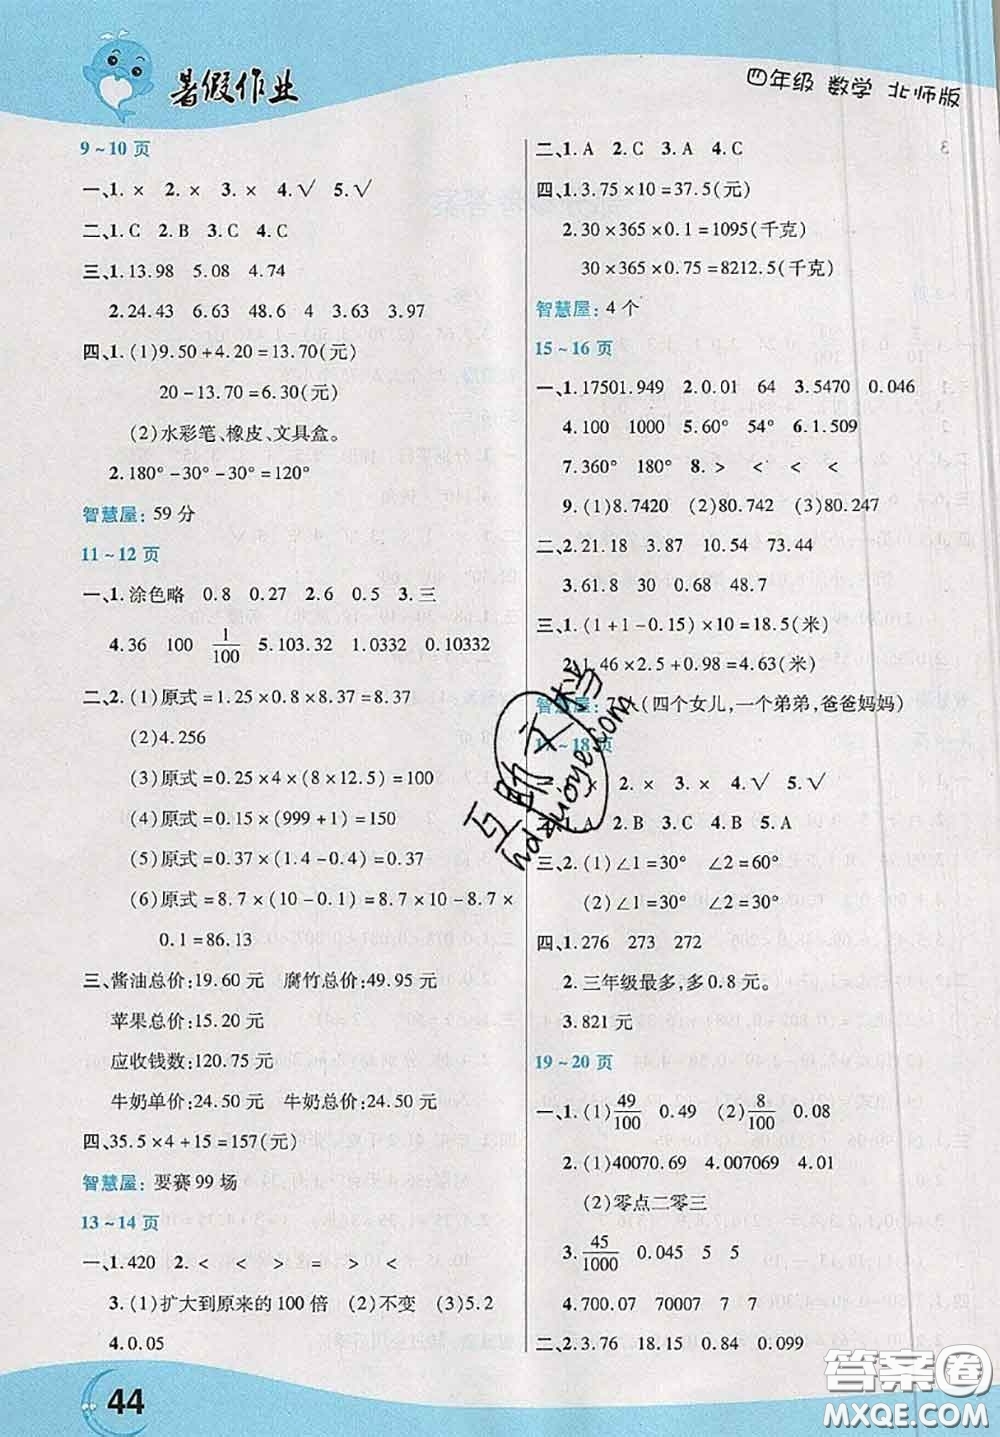 暑假作业
四年级 数学 北师版
9~10 页
一、1. × 2. × 3. × 4. √ 5. √
二、1. C 2. B 3. C 4. C
三、1. 13.98 5.08 4.74
2. 24.43 6.63 48.6 4 3.63 3.97
四、1. (1) 9.50+4.20=13.70(元)
20-13.70=6.30(元)
(2)水彩笔、橡皮、文具盒。
2. 180°-30°-30°=120°
智慧屋: 59 分
11~12 页
一、1. 涂色略 0.8 0.27 2. 6 0.5 3. 三
4. 36 100 1/100 5. 103.32 1.0332 0.10332
二、2. (1)原式=1.25×0.8×8.37=8.37
(2)4.256
(3)原式=0.25×4×(8×12.5)=100
(4)原式=0.15×(999+1)=150
(5)原式=0.37×(1.4-0.4)=0.37
(6)原式=8.7×(10-0.1)=8.7×10-8.7×
0.1=86.13
三、酱油总价:19.60 元 腐竹总价:49.95 元
苹果总价:15.20 元
应收钱数:120.75 元
牛奶单价:24.50 元 牛奶总价:24.50 元
四、35.5×4+15=157(元)
智慧屋: 要赛 99 场
13~14 页
一、1. 420 2. < < > = > <
3. (1)扩大到原来的 100 倍 (2)不变 (3)5.2
4. 0.05
44
二、1. A 2. C 3. A 4. C
四、1. 3.75×10=37.5(元)
2. 30×365×0.1=1095(千克)
30×365×0.75=8212.5(千克)
智慧屋: 4 个
15~16 页
一、1. 17501.949 2. 0.01 64 3. 5470 0.046
4. 100 1000 5. 60° 54° 6. 1.509
7. 360° 180° 8. > < < <
9. (1)8.7420 (2)80.742 (3)80.247
二、2. 21.18 3.87 10.54 73.44
3. 61.8 30 0.68 48.7
三、1. (1+1-0.15)×10=18.5(米)
2. 1.46×2.5+0.98=4.63(米)
智慧屋: 7人(四个女儿,一个弟弟,爸爸妈妈)
17~18 页
× 2. × 3. × 4. √ 5. √
1. A 2. B 3. C 4. B 5. A
三、2. (1)∠1=30° ∠2=60°
(2)∠1=30° ∠2=30°
四、1. 276 273 272
2. 三年级最多,多 0.8 元。
3. 821 元
19~20 页
一、1. (1) 49/100 0.49 (2) 8/100 0.08
2. (1)40070.69 4.007070 4.01
(2)零点二零三
3. 45/1000 0.045 5 5
4. 700.07 70007 7 7
二、2. 3.76 18.15 0.84 0.099
互助文档
hdzuoye.com
答案圈
MXQE.COM